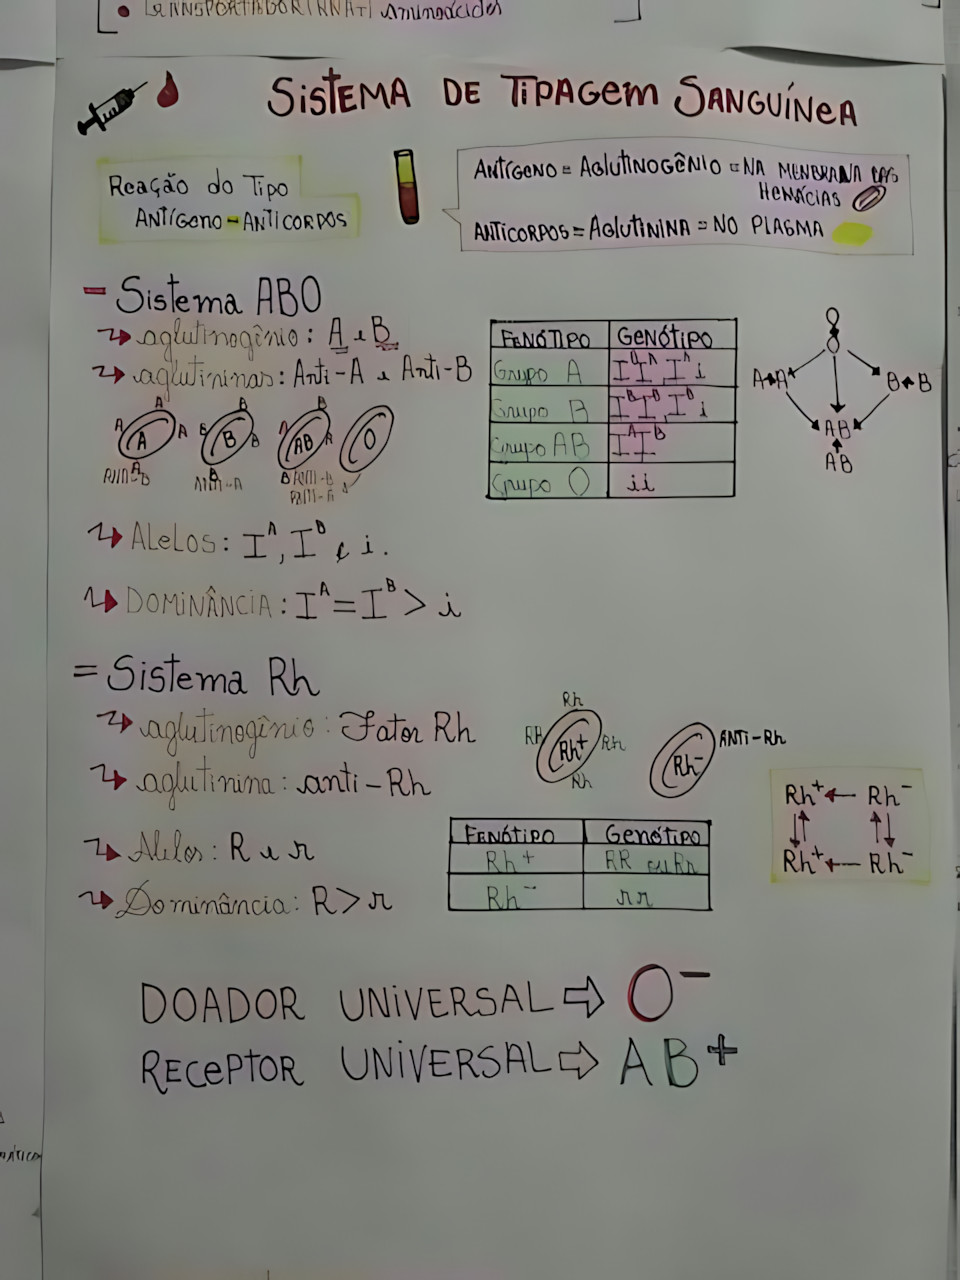 aminoácidos
SISTEMA DE TIPAGEM SANGUÍNEA
Reação do Tipo
ANTÍGENO-ANTICORPOS
ANTÍGENO = AGLUTINOGÊNIO = NA MENBRANA DAS
HEMÁCIAS
ANTICORPOS = AGLUTININA = NO PLASMA
- Sistema ABO
aglutinogênio: A e B
aglutininas: Anti-A e Anti-B
A A A A
B B B B
AB
O
FENÓTIPO GENÓTIPO
Grupo A
Grupo B
Grupo AB IᴬIᴮ
Grupo O ii
O
A A
B B
AB
AB
Alelos: Iᴬ, Iᴮ e i.
DOMINÂNCIA: Iᴬ = Iᴮ > i
= Sistema Rh
aglutinogênio: Fator Rh
aglutinina: anti-Rh
Rh
Rh Rh⁺ Rh
Rh
Rh⁻ ANTI-Rh
Alelos: R e r
Dominância: R > r
FENÓTIPO GENÓTIPO
Rh⁺ RR ou Rr
Rh⁻ rr
Rh⁺ ← Rh⁻
Rh⁺ ← Rh⁻
DOADOR UNIVERSAL ⇨ O⁻
RECEPTOR UNIVERSAL ⇨ AB+